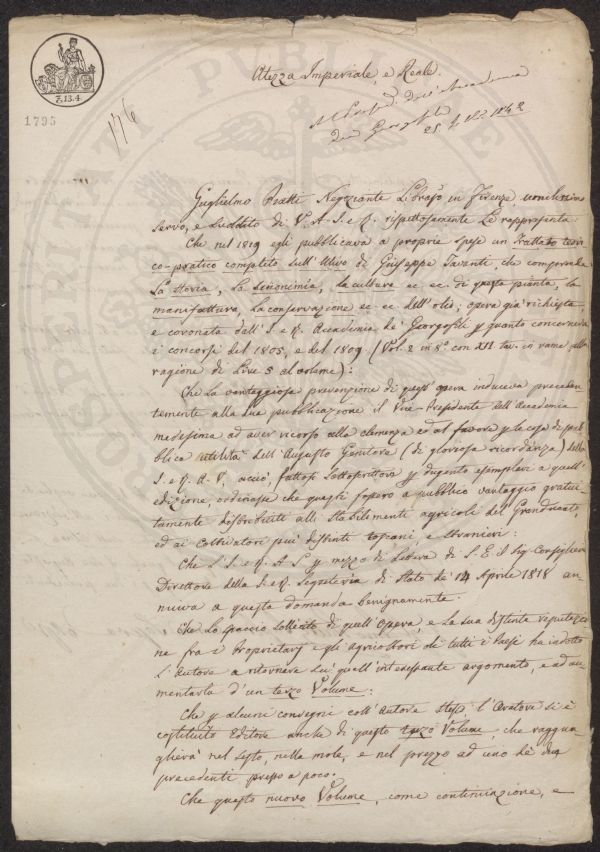 7.13.4.
1795
176
Altezza Imperiale, e Reale
Al Presid. dell'Accademia
dei Georgofili
25. 1842
Guglielmo Piatti Negoziante Librajo in Firenze umilissimo
servo, e suddito di V. A. I. e R. rispettosamente Le rappresenta:
Che nel 1819 egli pubblicava a proprie spese un Trattato teori
co-pratico completo sull'Ulivo di Giuseppe Tavanti, che comprende
La Storia, La Sinonimia, la cultura ec. ec. di questa pianta, la
manifattura, la conservazione ec. ec. dell'olio; opera già richiesta,
e coronata dall'I. e R. Accademia de' Georgofili p quanto concerneva
i concorsi del 1805, e del 1809 (Vol. 2 in 8° con XII tav. in rame alla
ragione di Lire 5 al volume):
Che la vantaggiosa prevenzione di quest'opera induceva preceden
temente alla sua pubblicazione il Vice-Presidente dell'Accademia
medesima ad aver ricorso alla clemenza ed al favore p la cosa di pub
blica utilità dell'Augusto Genitore (di gloriosa ricordanza) della
I. e R. A. V. acciò, fattosi sottoscrittore p dugento esemplari a quell'
edizione, ordinasse che questi fossero a pubblico vantaggio gratui
tamente distribuiti alli Stabilimenti agricoli del Granducato,
ed ai Coltivatori più distinti toscani, e stranieri:
Che S. I. e R. A. S. p mezzo di Lettera di S. E. il Sig. Consigliere
Direttore della I. e R. Segreteria di Stato de' 14 Aprile 1818 an
nuiva a questa domanda benignamente:
Che lo spaccio sollecito di quell'Opera, e la sua distinta reputazio
ne fra i Proprietarj e gli agricoltori di tutti i Paesi ha indotto
l'Autore a ritornare su quell'interessante argomento, e ad au
mentarla d'un terzo Volume:
Che p alcuni convegni coll'Autore stesso l'Oratore si è
costituito Editore anche di questo terzo Volume, che raggua
glierà nel sesto, nella mole, e nel prezzo ad uno de' due
precedenti presso a poco.
Che questo nuovo Volume, come continuazione, e